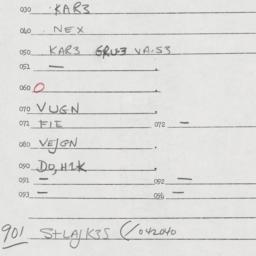 030 KAR3
040 NEX
050 KAR3 GRU3 VA.S3
051 —
060 O
070 VUGN
071 FIE 072 —
080 VEJGN
090 DO, H1K
091 — 092 —
093 — 096 —
901 S+LAJK3S (/042040